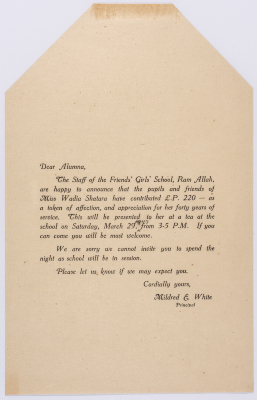 Dear Alumna,
The Staff of the Friends' Girls' School, Ram Allah,
are happy to announce that the pupils and friends of
Miss Wadia Shatara have contributed £.P. 220 — as
a token of affection, and appreciation for her forty years of
service. This will be presented to her at a tea at the
school on Saturday, March 29, from 3-5 P.M. If you
can come you will be most welcome.
We are sorry we cannot invite you to spend the
night as school will be in session.
Please let us, know if we may expect you.
Cordially yours,
Mildred E. White
Principal